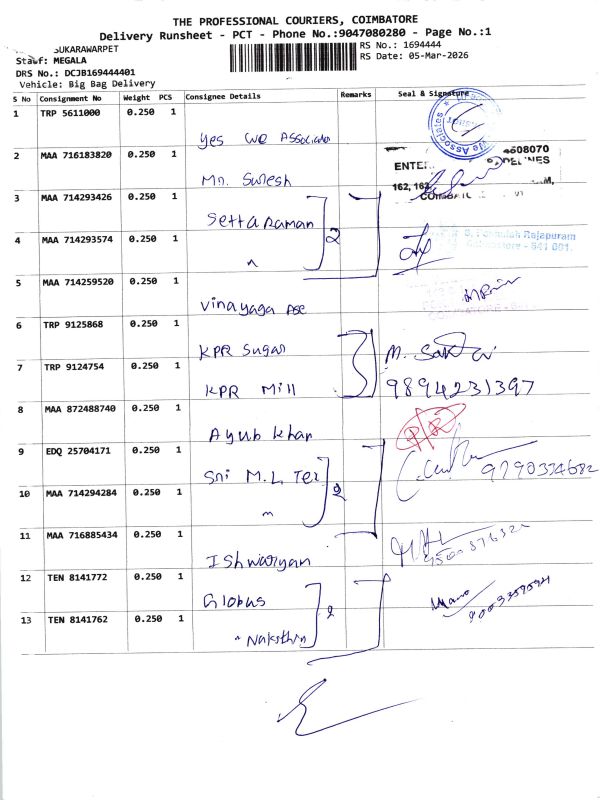 THE PROFESSIONAL COURIERS, COIMBATORE
Delivery Runsheet - PCT - Phone No.:9047080280 - Page No.:1
SUKARAWARPET
Staff: MEGALA
RS No.: 1694444
DRS No.: DCJB169444401
RS Date: 05-Mar-2026
Vehicle: Big Bag Delivery
S No Consignment No Weight PCS Consignee Details Remarks Seal & Signature
1 TRP 5611000 0.250 1
Yes We Associates
2 MAA 716183820 0.250 1
4508070
ENTER
Mr. Suresh
162, 163
3 MAA 714293426 0.250 1
COIMBATORE
Settaraman
2
4 MAA 714293574 0.250 1
Rajapuram
Coimbatore - 641 001.
"
5 MAA 714259520 0.250 1
Vinayaga Ase
6 TRP 9125868 0.250 1
KPR Sugar
3
M.
7 TRP 9124754 0.250 1
KPR Mill
9894231397
8 MAA 872488740 0.250 1
Ayub khan
9 EDQ 25704171 0.250 1
Sri M.L Tex
2
10 MAA 714294284 0.250 1
"
11 MAA 716885434 0.250 1
Ishwaryam
12 TEN 8141772 0.250 1
Globus
2
13 TEN 8141762 0.250 1
"